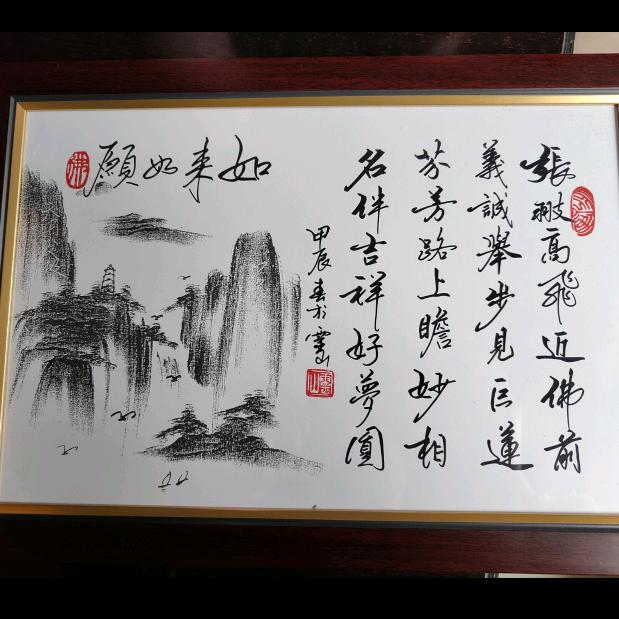 如来如願
張翅高飛近佛前
義誠舉步見巨蓮
芬芳路上瞻妙相
名伴吉祥好夢圓
甲辰春於雲山
雲山
佛